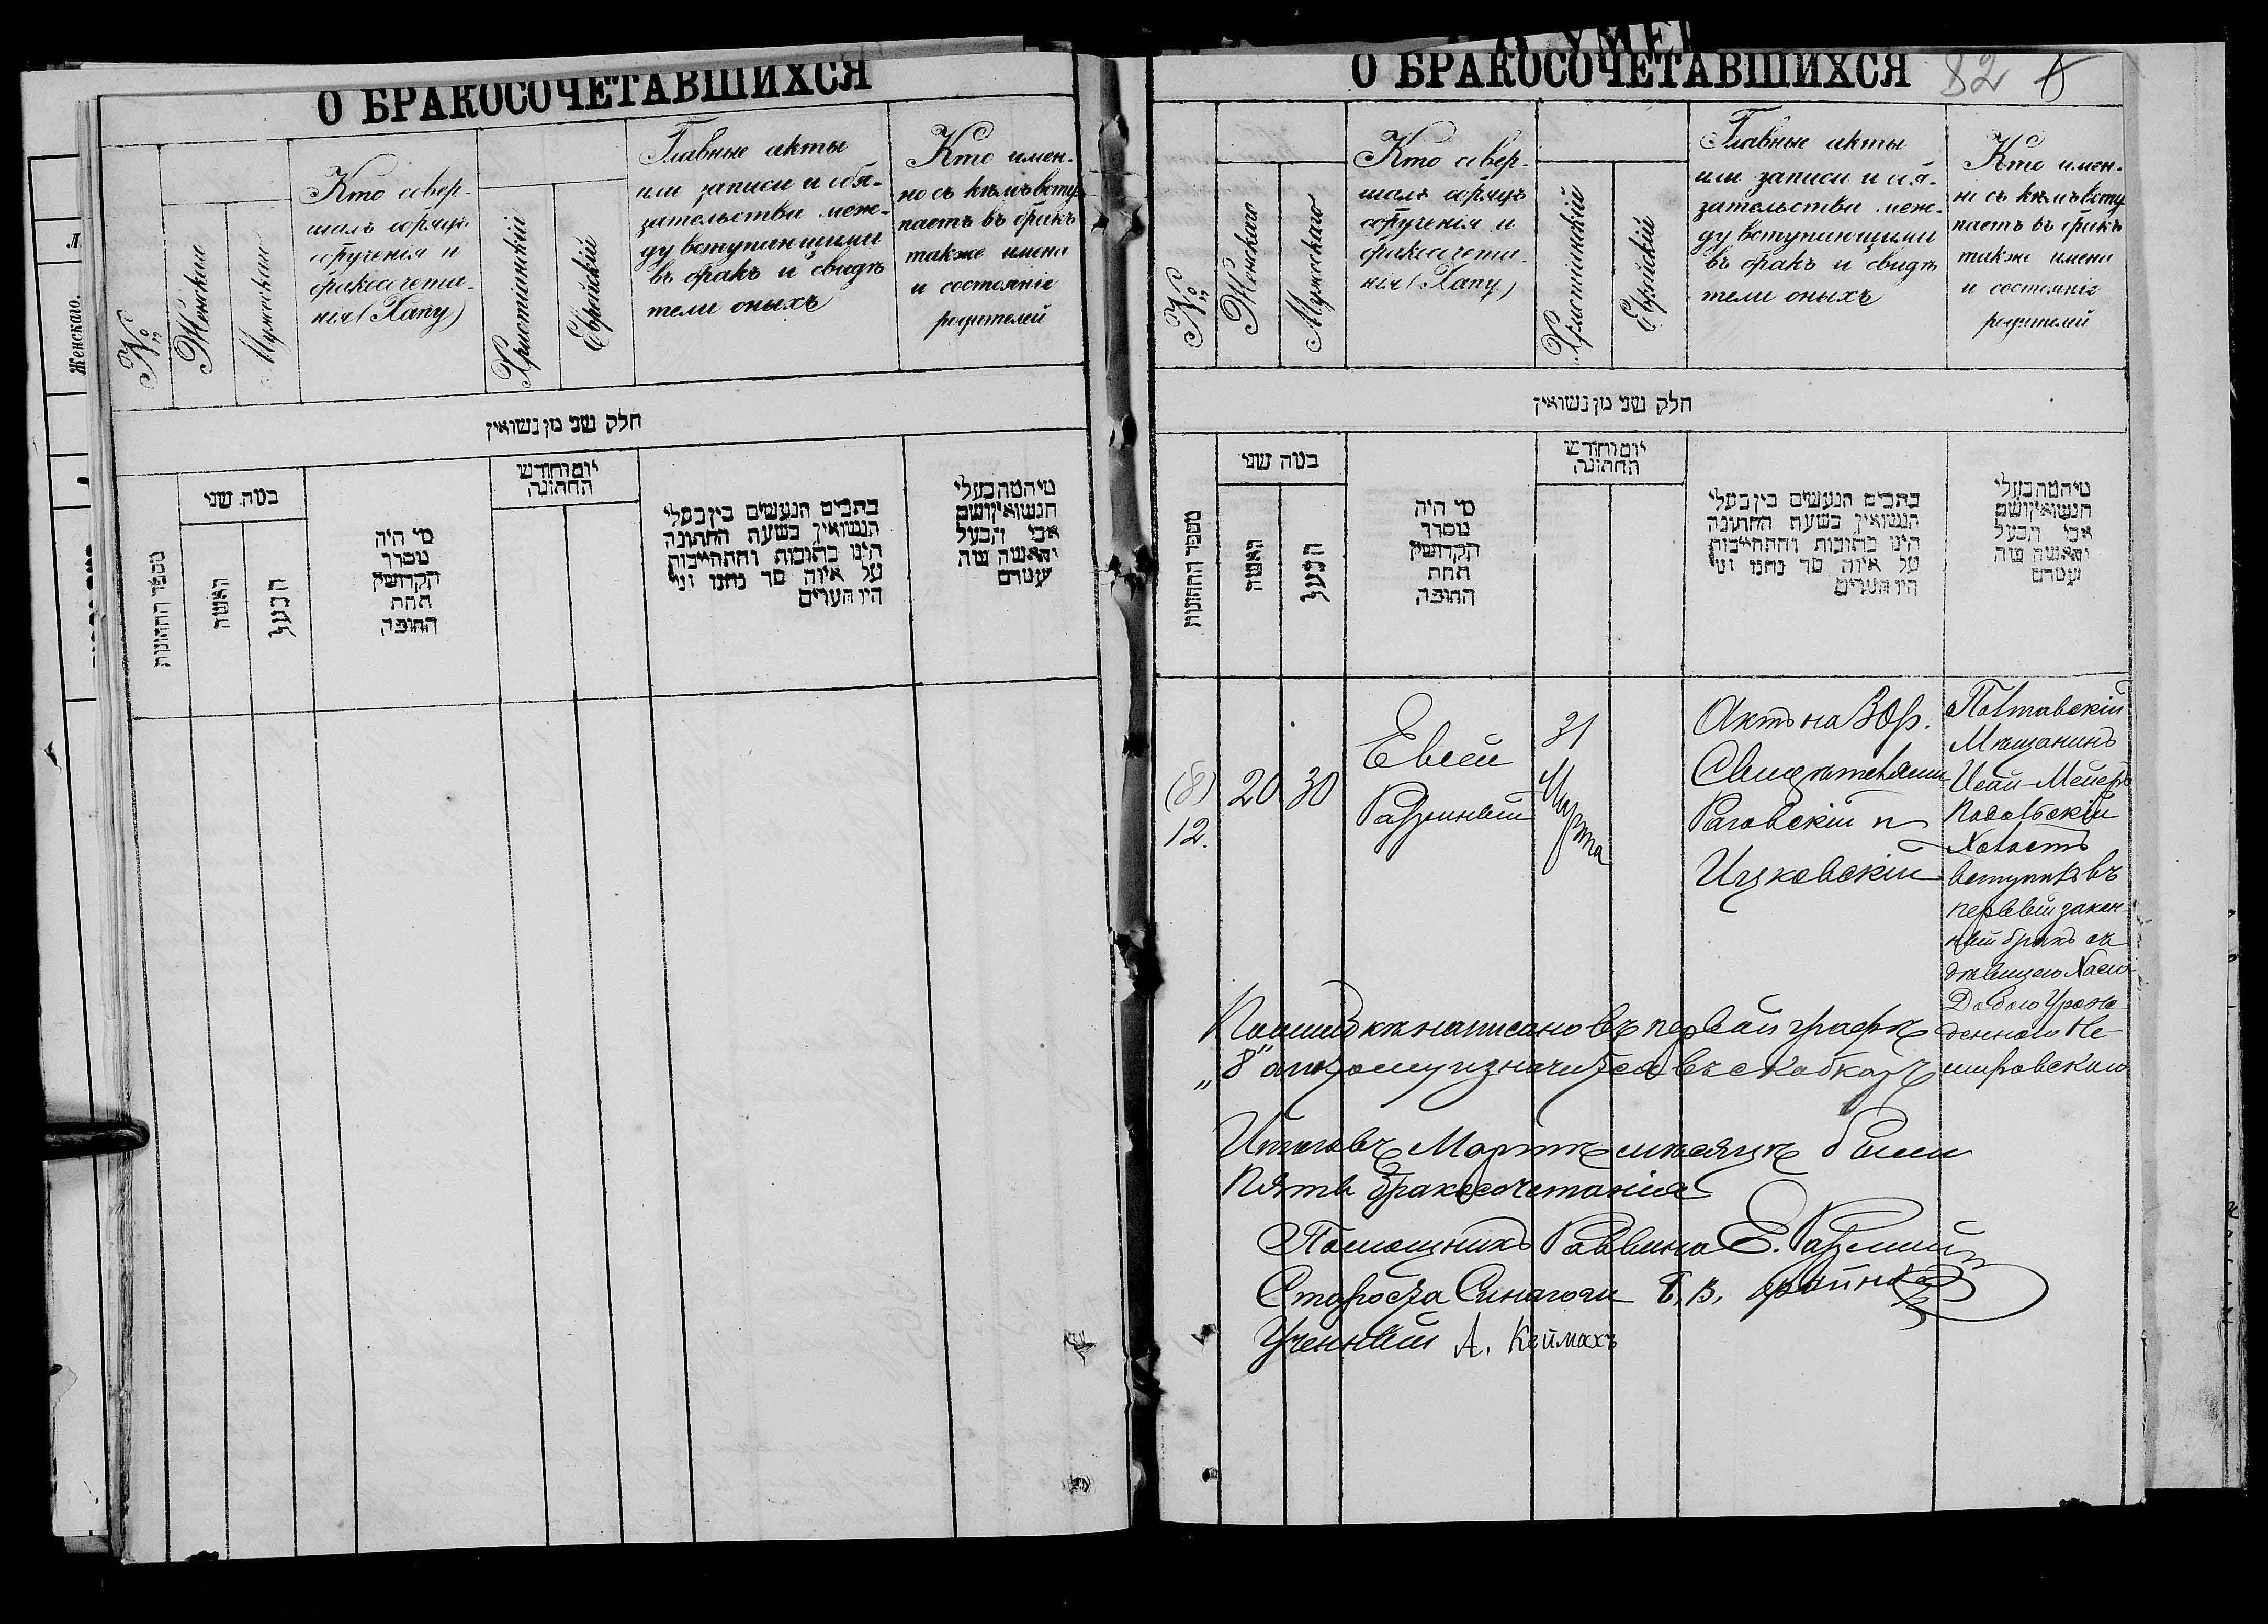 О БРАКОСОЧЕТАВШИХСЯ
№
Женскаго
Мужескаго
Кто совер-
шалъ обрядъ
обрученія и
бракосочета-
нія (Хапу)
Христіанскій
Еврейскій
Главные акты
или записи и обя-
зательства меж-
ду вступающими
въ бракъ и свидѣ
тели оныхъ
Кто имен-
но съ кѣмъ всту
паетъ въ бракъ
также имена
и состояніе
родителей
חלק שני מן נשואין
מספר החתונות
בטה שני
האשה
הבעל
מי היה
מסדר
הקדושין
תחת
החופה
יום וחודש
החתונה
כתבים הנעשים בין בעלי
הנשואין בשעת החתונה
היינו כתובות והתחייבות
על איזה סך נתנו ומי
היו העדים
מי המה בעלי
הנשואין ושם
אבי הבעל
והאשה מה
Женскаго.
О БРАКОСОЧЕТАВШИХСЯ 82
№
Женскаго
Мужескаго
Кто совер-
шалъ обрядъ
обрученія и
бракосочета-
нія (Хапу)
Христіанскій
Еврейскій
Главные акты
или записи и обя-
зательства меж-
ду вступающими
въ бракъ и свидѣ
тели оныхъ
Кто имен-
но съ кѣмъ всту
паетъ въ бракъ
также имена
и состояніе
родителей
חלק שני מן נשואין
מספר החתונות
בטה שני
האשה
הבעל
מי היה
מסדר
הקדושין
תחת
החופה
יום וחודש
החתונה
כתבים הנעשים בין בעלי
הנשואין בשעת החתונה
היינו כתובות והתחייבות
על איזה סך נתנו ומי
היו העדים
מי המה בעלי
הנשואין ושם
אבי הבעל
והאשה מה
(8)
12.
20
30
Евсей
Разумный
31
Марта
Актъ на
Свидѣтелями
Раговскій и
Ицковскій
Полтавскій
Мѣщанинъ
Исай-Мейеръ
Подольскій
Холостъ
вступилъ въ
первый закон-
ный бракъ съ
дѣвицею Хаею
Урож
денною Не-
мировскою
По ошибкѣ написано въ первой графѣ
„8“ а потому и значится въ скобкахъ
Итого въ Мартѣ мѣсяцѣ было
Пять бракосочетанія
Помощникъ Раввина Е. Разумный
Староста Синагоги
Ученый А. Кеймахъ